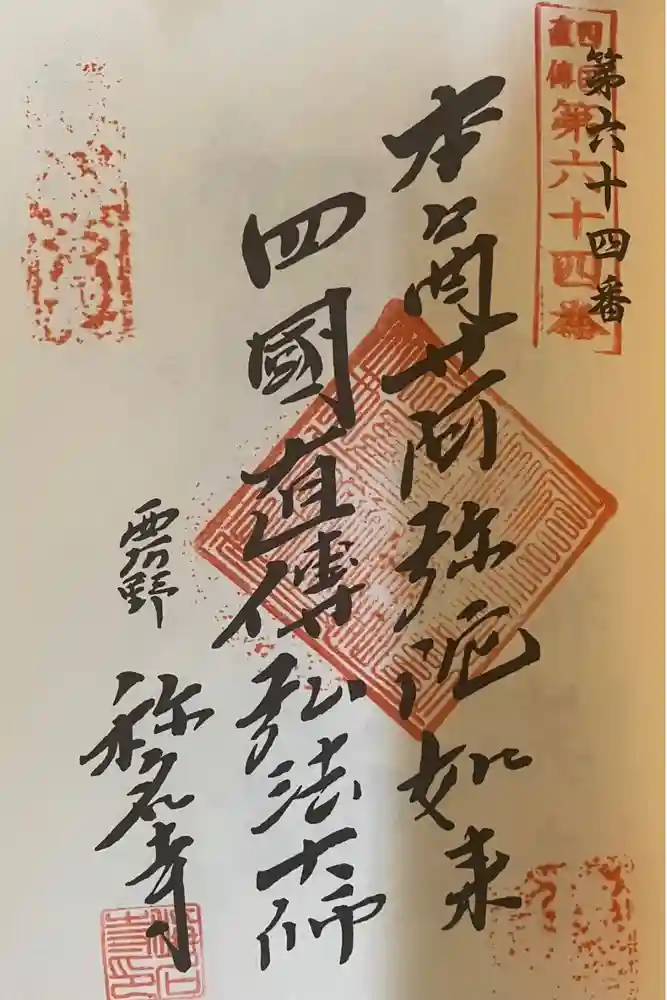 第六十四番
四国
直傳
第六十四番
本尊阿弥陀如来
四國直傳弘法大師
称名寺